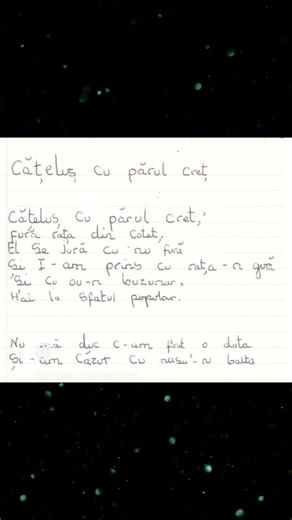 Cățeluș cu părul creț
Cățeluș cu părul creț,
Fură rața din coteț,
El se jură cu nu fură
Și I-am prins cu rața-n gură
Și cu ou-n buzunar,
Hai la sfatul popular.
Nu mă duc c-am fost o data
Și-am Căzut cu nasu'-n balta